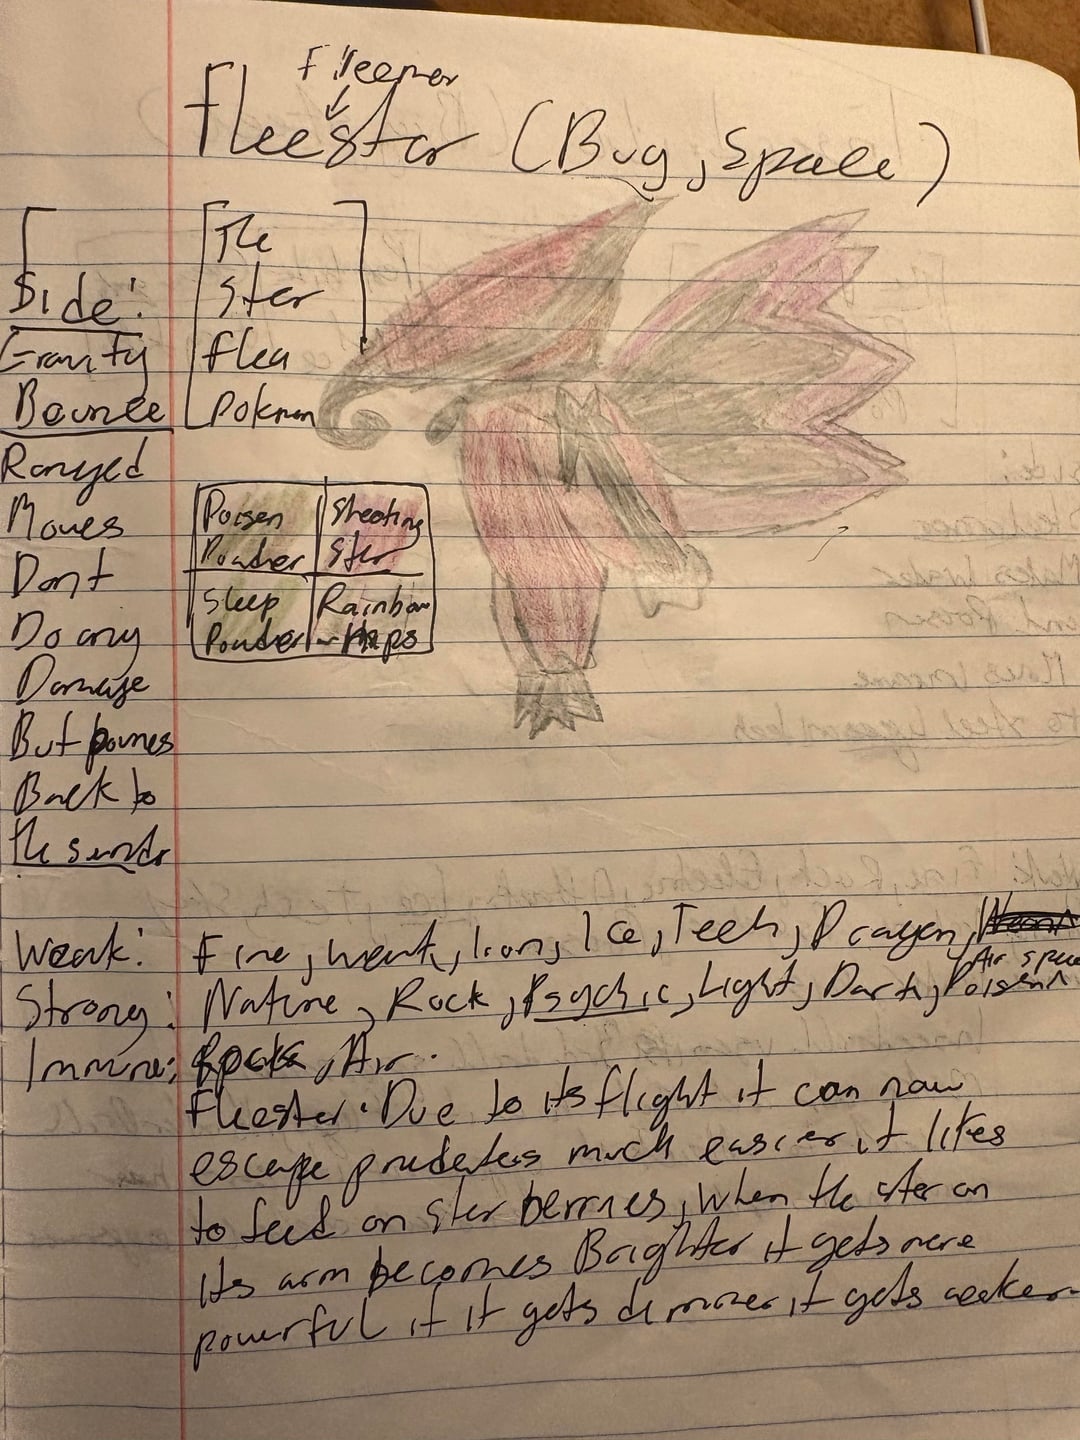 Fleemer
Fleestar (Bug, Space)
The
Star
Flea
Pokmon
Side:
Gravity
Bounce
Ranged
Moves
Dont
Do any
Damage
But pounes
Back to
the sender
Poisen Powder
Shooting Star
Sleep Powder
Rainbow
Weak: Fire, Iron, Ice, Tech, Dragon,
Air space
Strong: Nature, Rock, Psychic, Light, Dark, Poisen
Immune: Air.
Fleestar. Due to its flight it can now
escape predeters much easier, it likes
to feed on Star berries, when the star on
its arm becomes Brighter it gets more
powerful if it gets dimmer it gets weeker